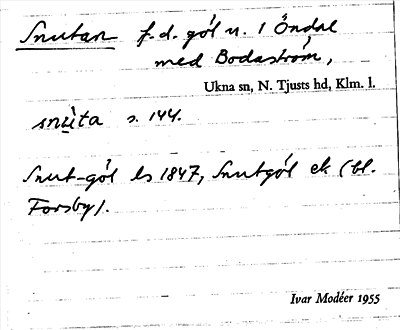 Snutan f.d. göl u. 1 Öndal
med Bodaström,
Ukna sn, N. Tjusts hd, Klm. l.
snu̱ta s. 144.
Snut-göl ls 1847, Snutgöl ek (bl.
Forsby).
Ivar Modéer 1955